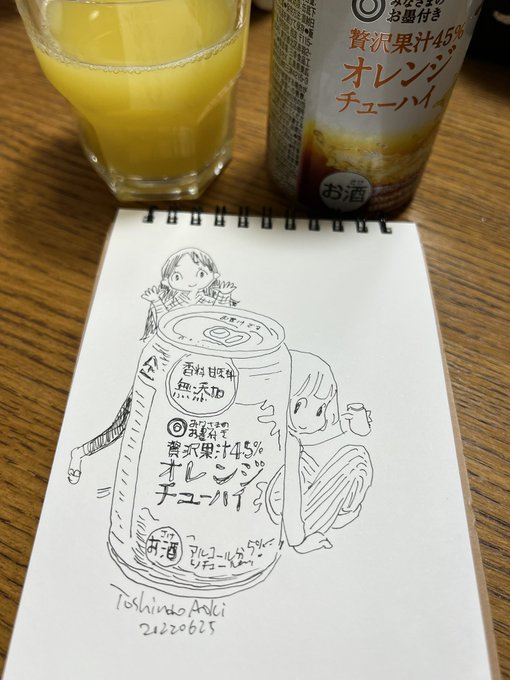 みなさまの
お墨付き
贅沢果汁45%
オレンジ
チューハイ
さけ
お酒
お酒です
香料 甘味料
無添加
みなさまの
お墨付き
贅沢果汁45%
オレンジ
チューハイ
さけ
お酒
アルコール分5%
リキュール
Toshinao Aoki
20220625